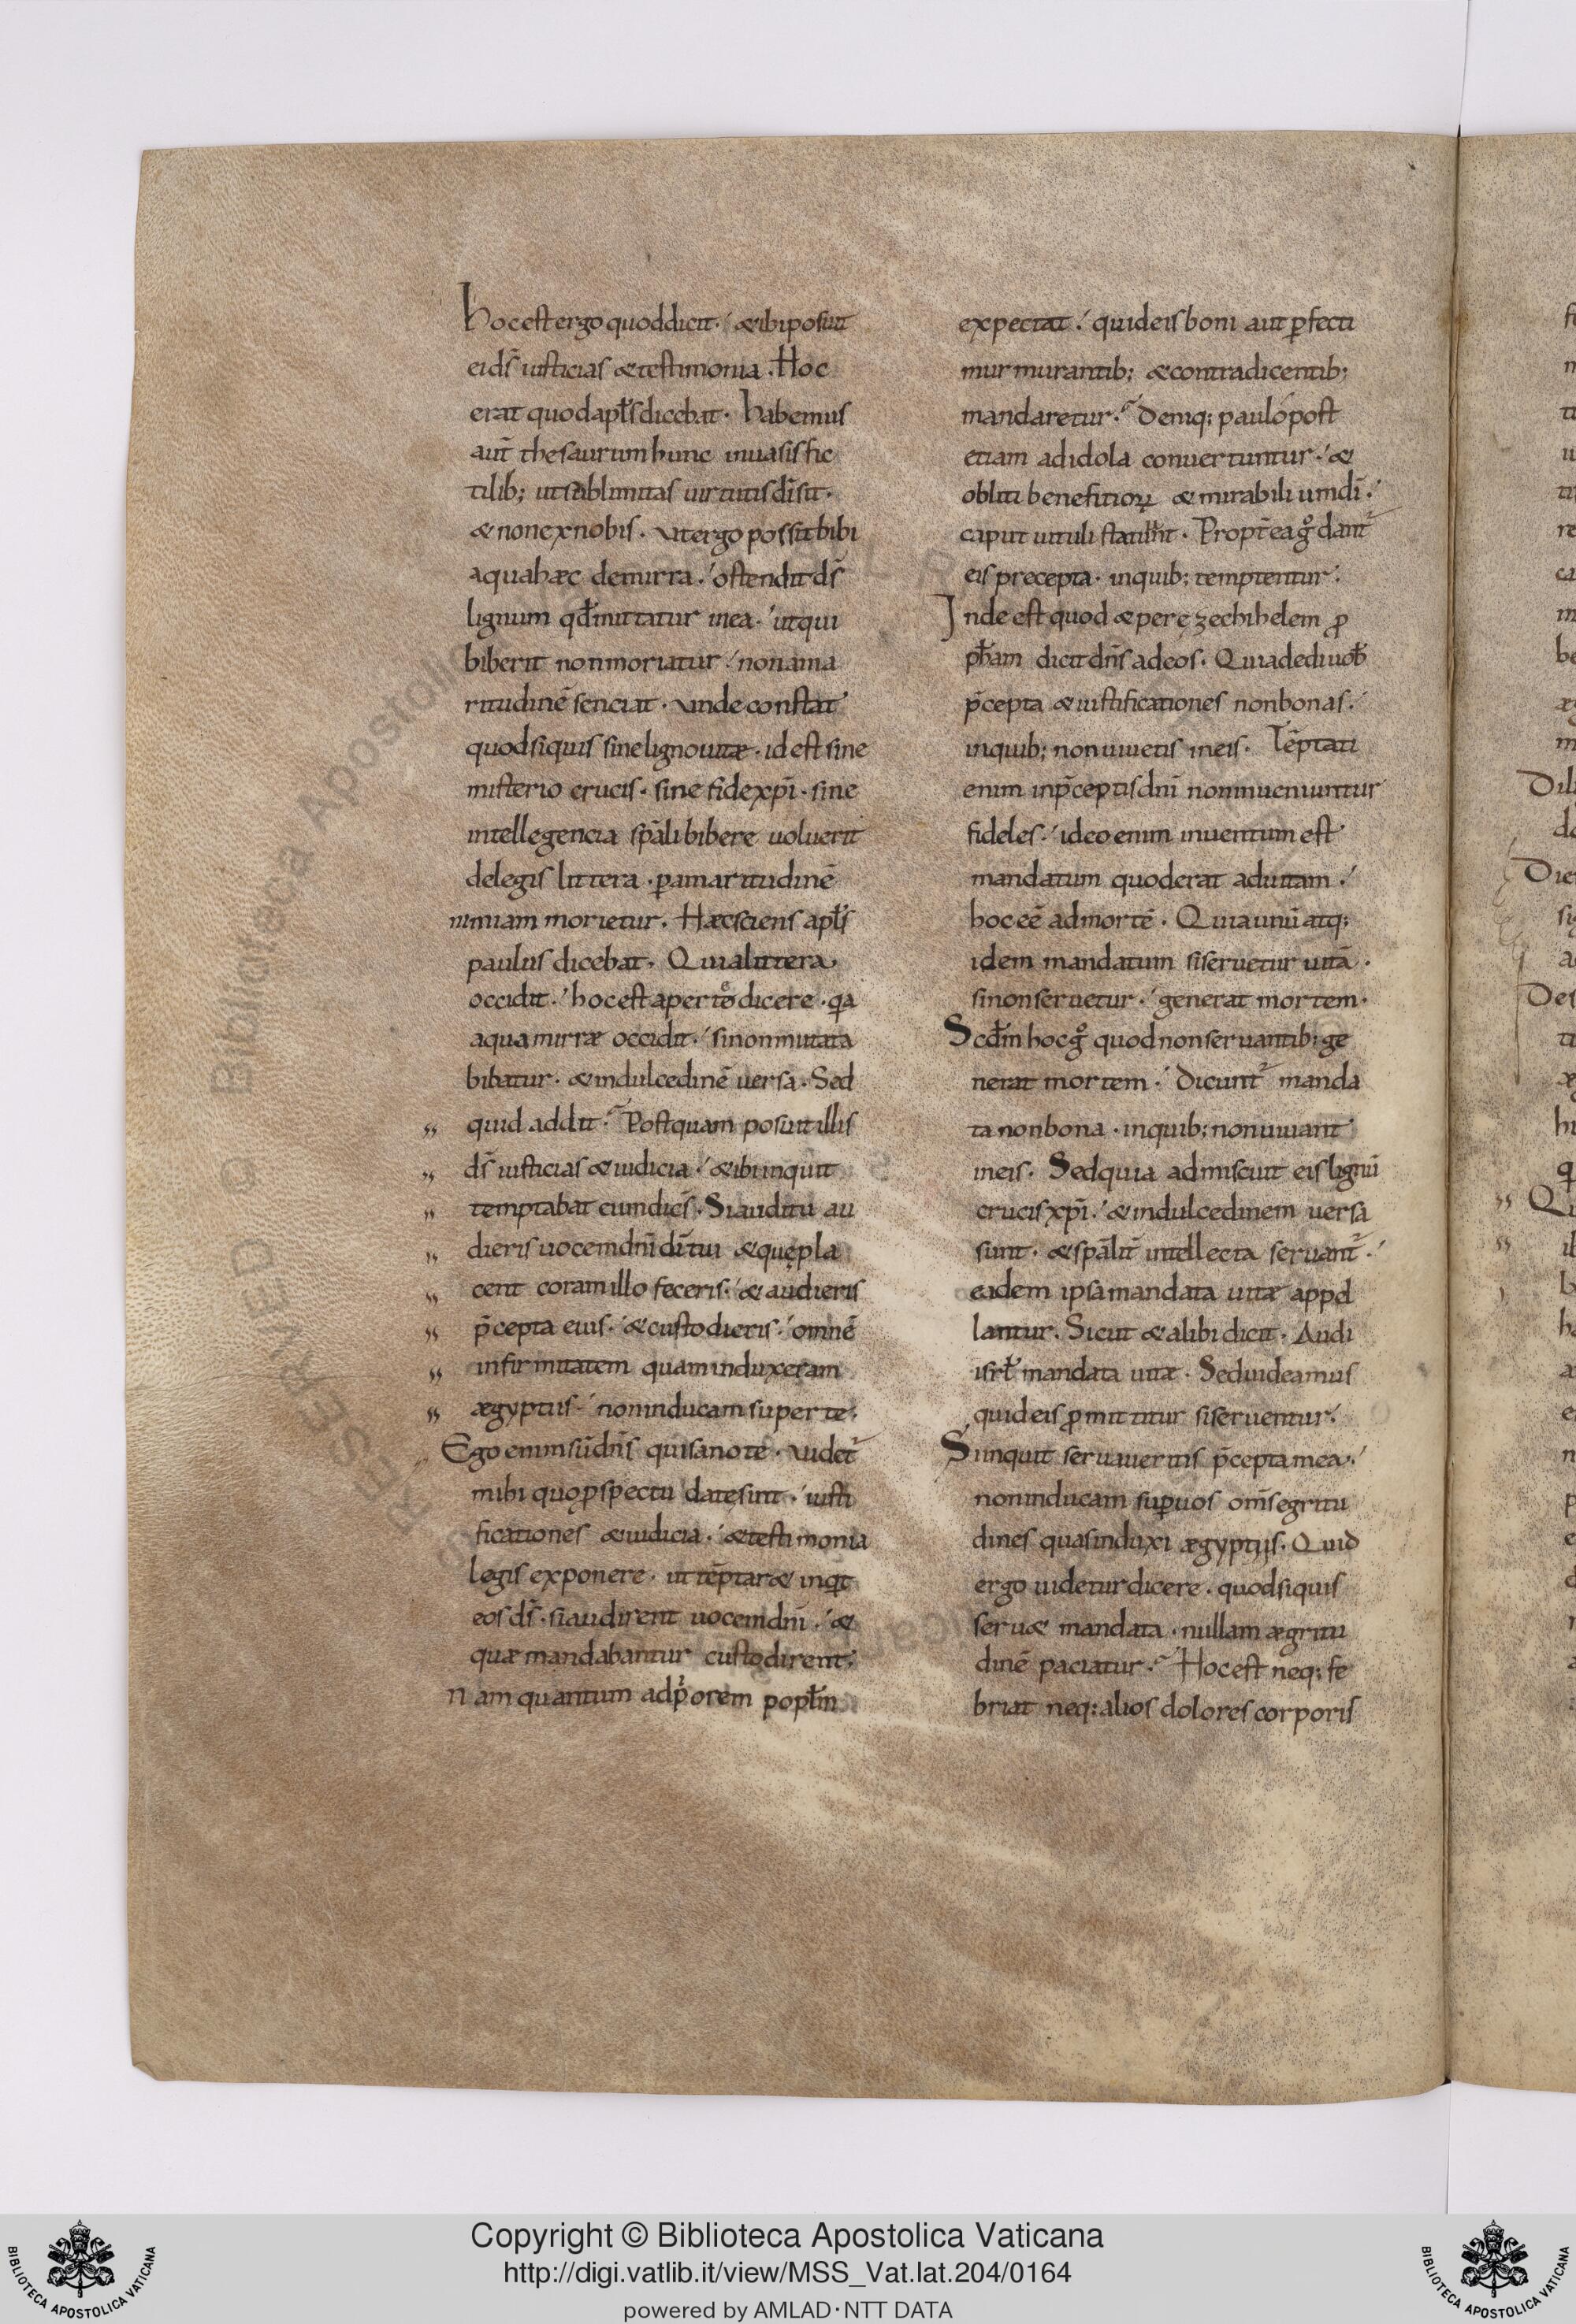 Hoc est ergo quod dicit· & ibi posuit
ei ds̄ iusticias & testimonia. Hoc
erat quod apłs dicebat· habemus
aut̄ thesaurum hunc in uasis fic
tilib; ut sublimitas uirtutis dī sit·
& non ex nobis. Vt ergo possit bibi
aqua haec de mirra· ostendit ds̄
lignum qđ mittatur in ea· ut qui
biberit non moriatur· non ama
ritudinē senciat· unde constat
quod si quis sine ligno uitae· id est sine
misterio crucis· sine fide xp̄i· sine
intellegencia sp̄ali bibere uoluerit
de legis littera· p̱ amaritudinē
nimiam morietur. Haec sciens apłs
paulus dicebat. Quia littera
occidit· hoc est aperte dicere· qa
aqua mirrae occidit· si non mutata
bibatur· & in dulcedinē uersa. Sed
quid addit· Postquam posuit illis
ds̄ iusticias & iudicia· & ibi inquit
temptabat eum dicēs. Si auditu au
dieris uocem dn̄i dī tui & quę pla
cent coram illo feceris· & audieris
p̄cepta eius· & custodieris· omnē
infirmitatem quam induxeram
aegyptiis· non inducam super te·
Ego enim sū dn̄s qui sano te· Videt᷑
mihi quo ꝓspectu datę sint· iusti
ficationes & iudicia· & testimonia
legis exponere· ut tēptar& inqt
eos ds̄· si audirent uocem dn̄i· &
quae mandabantur custodirent·
nam quantum ad p̱orem popłm
expectat· quid eis boni aut p̱fecti
murmurantib; & contradicentib;
mandaretur· Deniq; paulo post
etiam ad idola conuertuntur· &
obliti benefitioꝝ & mirabilium dī·
caput uituli statuunt· Propt̄ea g° dant᷑
eis precepta· in quib; temptentur·
Inde est quod & per ęzechihelem ꝓ
ph̄am dicit dn̄s ad eos. Quia dedi uob̄
p̄cepta & iustificationes non bonas·
in quib; non uiuetis in eis. Tēptati
enim in p̄ceptis dn̄i non inueniuntur
fideles· ideo enim inuentum est
mandatum quod erat ad uitam·
hoc eē ad mortē· Quia unū atq;
idem mandatum si seruetur uitā·
si non seruetur· generat mortem·
Scđm hoc g° quod non seruantib; ge
nerat mortem· Dicunt᷑ manda
ta non bona· in quib; non uiuant
in eis. Sed quia admiscuit eis lignū
crucis xp̄i· & in dulcedinem uersa
sunt· & sp̄alit̄ intellecta seruant᷑·
eadem ipsa mandata uitae appel
lantur. Sicut & alibi dicit. Audi
isrł mandata uitae. Sed uideamus
quid eis ꝓmittitur si seruentur·
Si inquit seruaueritis p̄cepta mea·
non inducam sup̱ uos om̄s egritu
dines quas induxi aegyptiis. Quid
ergo uidetur dicere· quod si quis
seru& mandata· nullam aegritu
dinē paciatur· Hoc est neq; fe
briat neq; alios dolores corporis
Copyright © Biblioteca Apostolica Vaticana
http://digi.vatlib.it/view/MSS_Vat.lat.204/0164
powered by AMLAD·NTT DATA